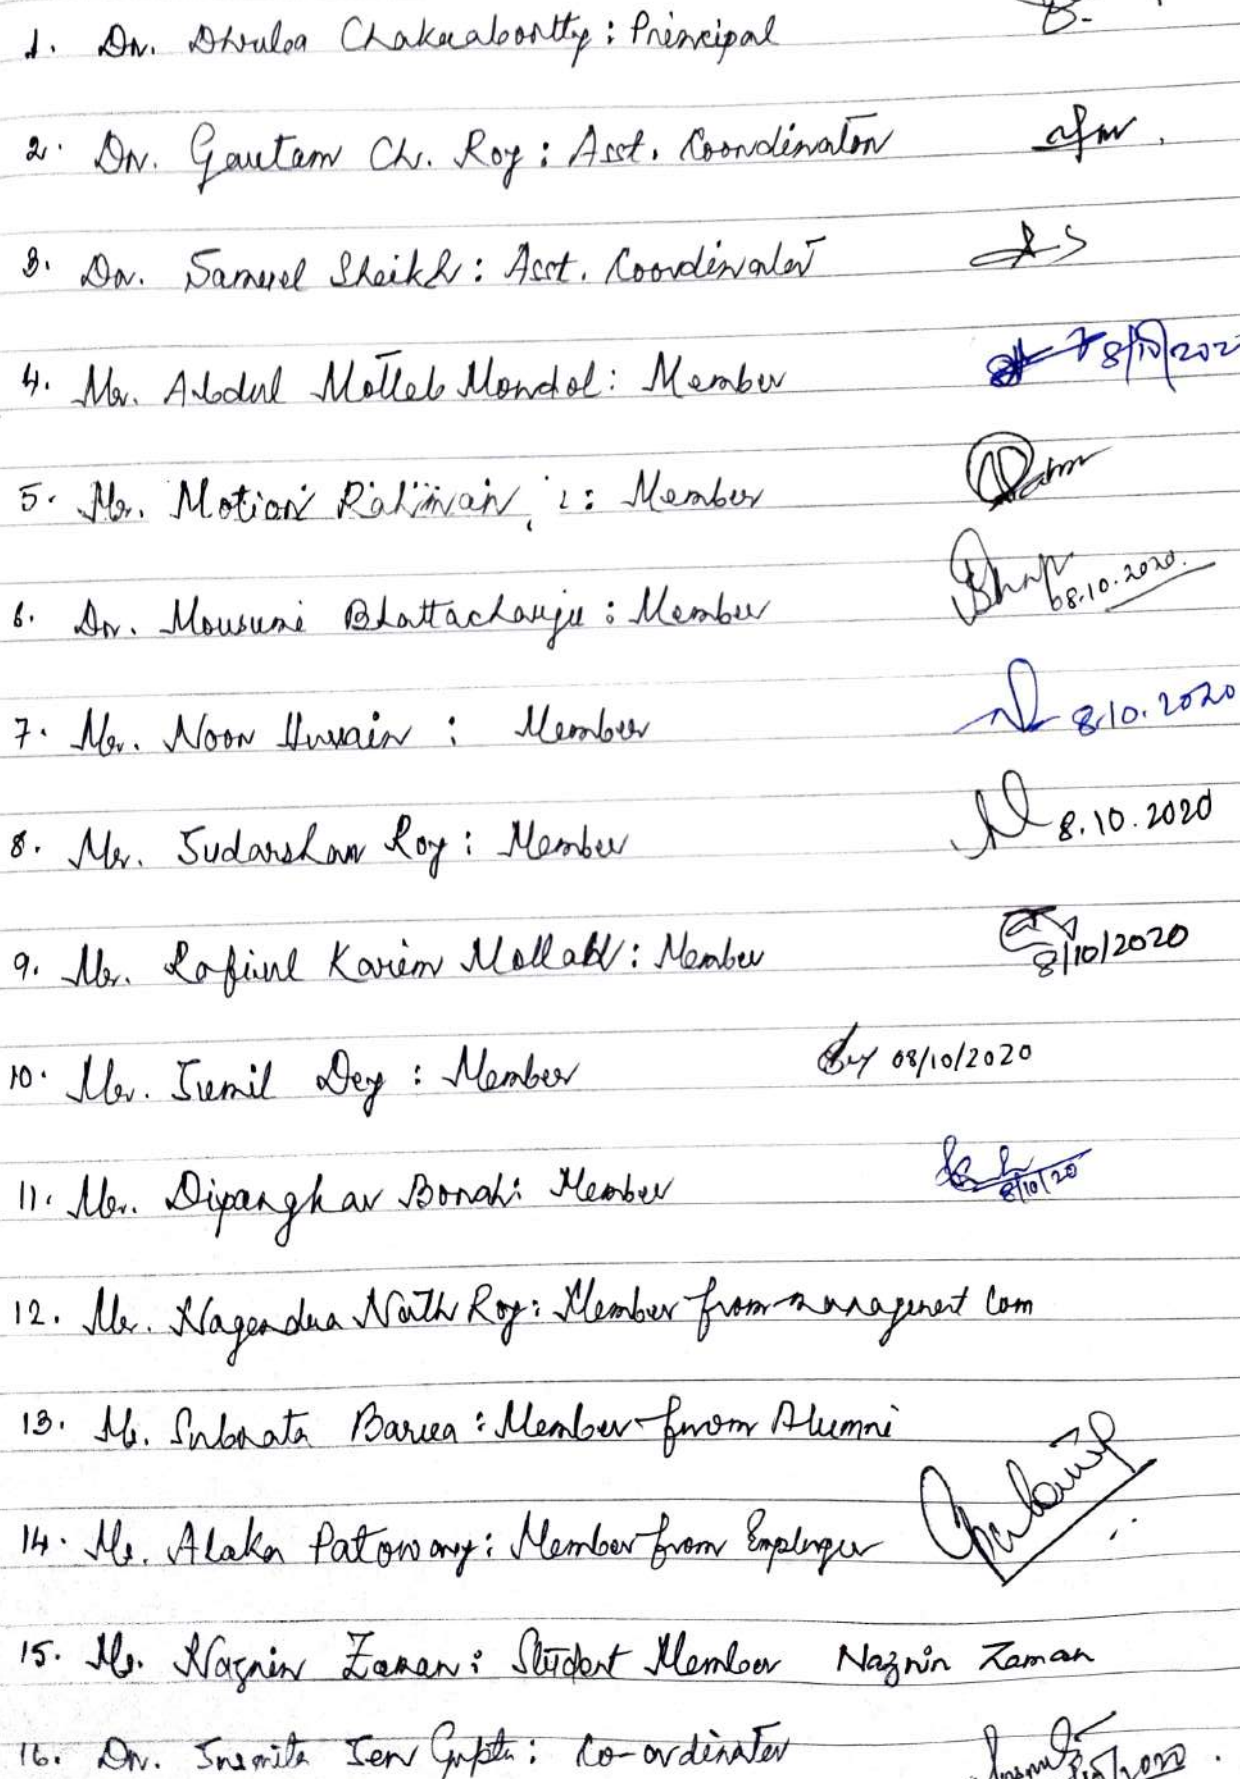 1. Dr. Dhruba Chakraabortty : Principal
2. Dr. Gautam Ch. Roy : Asst. Coordinator
3. Dr. Samuel Sheikh : Asst. Coordinator
4. Mr. Abdul Motleb Mondol : Member 8/10/202
5. Mr. Motior Rahman : Member
6. Dr. Mousumi Bhattacharjee : Member 08.10.2020.
7. Mr. Noor Hussain : Member 8.10.2020
8. Mr. Sudarshan Roy : Member 8.10.2020
9. Mr. Rafiul Karim Mollah : Member 8/10/2020
10. Mr. Sumil Dey : Member 08/10/2020
11. Mr. Dipangkar Borah : Member 8/10/20
12. Mr. Nagendra Nath Roy : Member from management Com
13. Mr. Subrata Barua : Member from Alumni
14. Ms. Alaka Patowary : Member from Employer
15. Ms. Naznin Zaman : Student Member Naznin Zaman
16. Dr. Susmita Sen Gupta : Co-ordinator